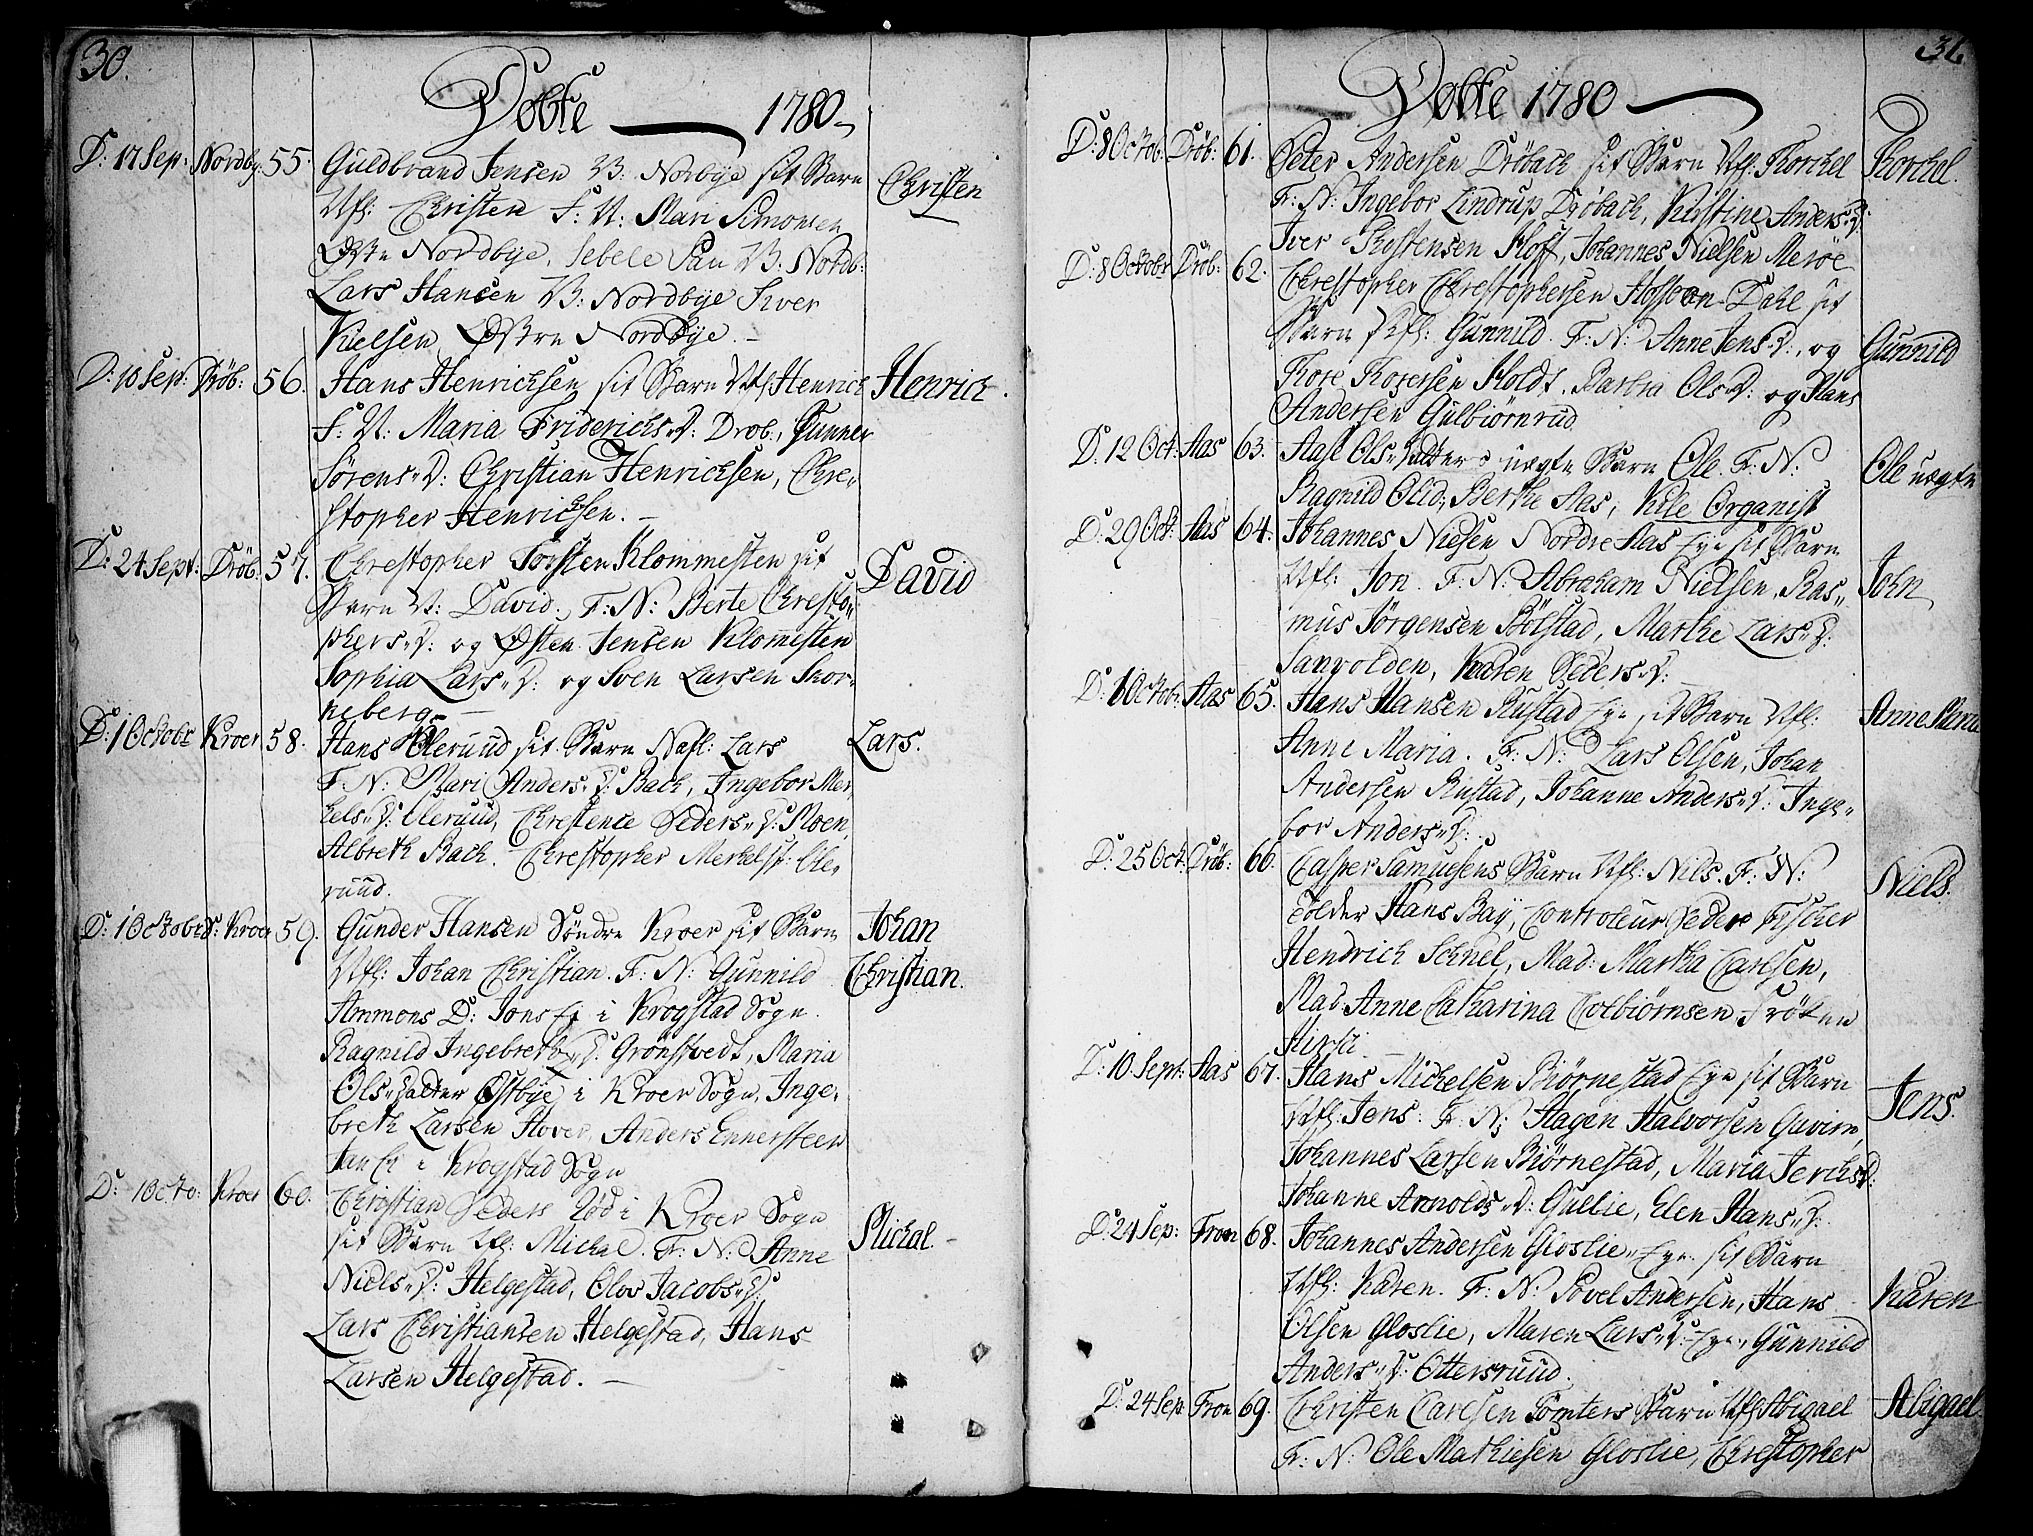 30.
Döbte 1780
D: 17 Sep: Nordby: 55. Guldbrand Jensen V: Nordbye sit Barn Christen
Nfl: Christen F: N: Mari Simonsen
Østre Nordbye, Sebele Pau V: Nordb:
Lars Hansen V: Nordbye Siver
Kielsen Østre Nordbye.
D: 18 Sep: Dröb: 56. Hans Henrichsen sit Barn Nfl Henrich Henrich.
F: N: Maria Friderichs D: Drob:, Gunner
Sörens D: Christian Henrichsen, Chre-
stopher Henrichsen.
D: 24 Sept: Dröb: 57. Chrestopher Torsten Klommesten sit David
Barn N: David. F: N: Berte Chresto-
phers D: og Østen Jensen Klommesten
Sophia Lars D: og Sven Larsen Skor-
neberg
D: 1 Octobr Kroer 58. Hans Olerud sit Barn Nafl: Lars Lars.
F. N: Mari Anders D: Bach, Ingebor Mer-
kels D: Oleruud, Chrestence Peders D: Moen,
Albreth Bach. Chrestopher Merkelst: Ole-
ruud.
D: 1 Octobr S: Kroer 59. Gunder Hansen Söndre Kroer sit Barn Johan
Nfl: Johan Christian. F: N: Gunnild Christian.
Ammons D: Jons Ey i Krogstad Sogn.
Ragnild Ingebreths D: Grönstvedt, Maria
Ols Datter Østbye i Kroer Sogn, Inge-
breth Larsen Hover, Anders Ennersteen
i Krogstad Sogn
D: 1 Octo: Kroer 60. Christian Peders Röd i Kroer Sogn
sit Barn Nfl: Michal. F: N: Anne Michal.
Niels D: Helgestad, Olov Jacobs D:
Lars Christiansen Helgestad, Hans
Larsen Helgestad.
31
Döbte 1780
D: 8 Octob: Dröb: 61. Peter Andersen Dröbach sit Barn Nfl. Torckel Torckel.
F: N: Ingebor Lindrup Dröbach, Kirstine Anders D:
Iver Kristensen Hoff, Johannes Nielsen Meröe
D: 8 Octobr Dröb: 62. Chrestopher Chrestophersen Dahl sit
Barn Nfl: Gunnild. F: N: Anne Jens D:, og Gunnild
Tore Toresen Holdt. Barbra Ols D: og Hans
Andersen Gulbiörnrud
D: 12 Oct: Aas 63. Aase Ols Datter uægte Barn Ole. F: N: Ole uægte
Ragnild Olsd: Berthe Aas, Kile Organist
D: 29 Oct: Aas 64. Johannes Nielsen Nordre Aas Eye sit Barn
Nfl: Jon. F: N: Abraham Nielsen, Ras- John
mus Jörgensen Bölstad, Marthe Lars D:
Sanvolden, Karen Peders D:
D: 1 Octob: Aas 65. Hans Hansen Rustad Eye sit Barn Nfl: Anne Maria
Anne Maria. F: N: Lars Olsen, Johan
Andersen Rustad, Johanne Anders D: Inge-
bor Anders D:
D: 25 Oct: Dröb: 66. Casper Samuelsens Barn Nfl: Nils. F: N: Niels.
Tolder Hans Bay, Controleur Peder Fischer
Hendrich Schnel, Mad: Martha Carlsen,
Mad Anne Catharina Colbiörnsen, Fröken
D: 10 Sept: Aas 67. Hans Michelsen Biörnestad Eye sit Barn Jens.
Nfl: Jens. F: N: Hagen Halvorsen Gavirn,
Johannes Larsen Biörnestad, Maria Jerichs D:
Johanne Arnolds D: Gullie, Elen Hans D:
D: 24 Sep: Fron 68. Johannes Andersen Gloslie Eye sit Barn
Nfl: Karen. F: N: Povel Andersen, Hans Karen
Olsen Gloslie, Maren Lars D: Eye, Gunnild
Anders D: Ottersruud.
D: 24 Sep: Fron 69. Christen Carlsen Tomters Barn Nfl Abigael Abigael.
F: N: Ole Mathiesen Gloslie, Chrestopher